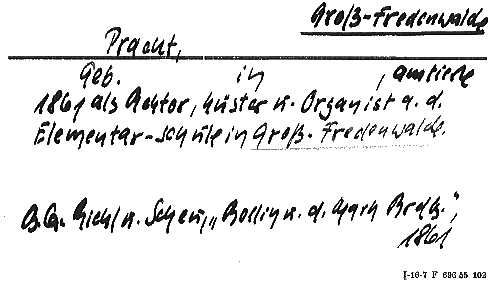 Groß-Fredenwalde
Pracht,
Geb. in , amtierte
1861 als Rektor, Küster u. Organist a. d.
Elementar-Schule in Groß-Fredenwalde.
Riehl u. Scheu, „Berlin u. d. Mark Brdbg.",
1861
I-16-7 F 696 55 102